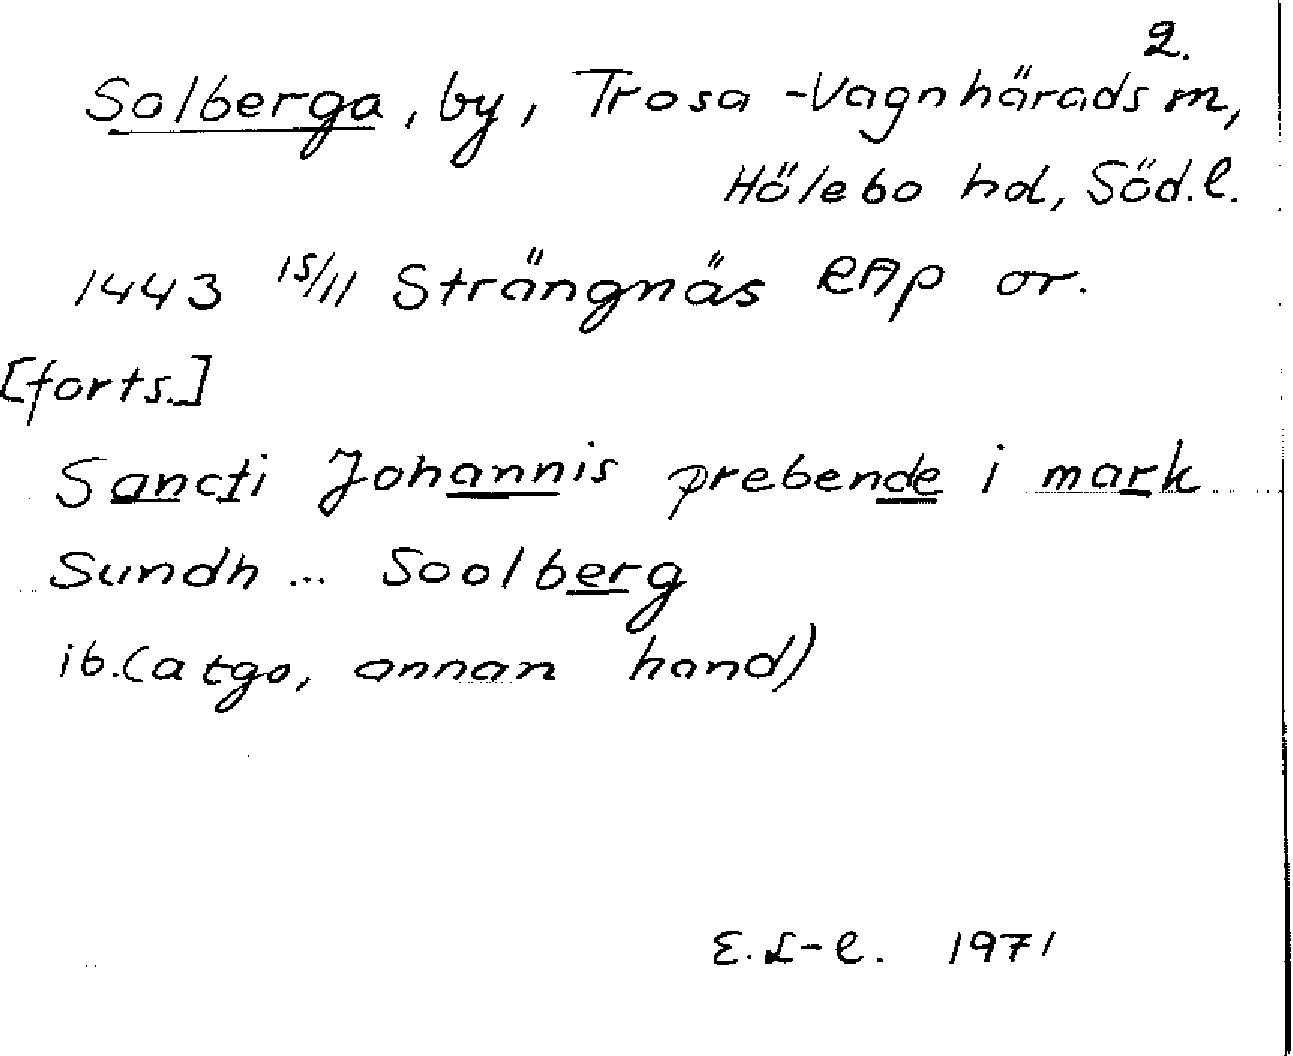 2.
Solberga, by, Trosa-Vagnhärads m,
Hölebo hd, Söd. l.
1443 15/11 Strängnäs RAp or.
[forts.]
Sancti Johannis prebende i mark
Sundh ... Soolberg
ib. (atgo, annan hand)
E. L-l. 1971